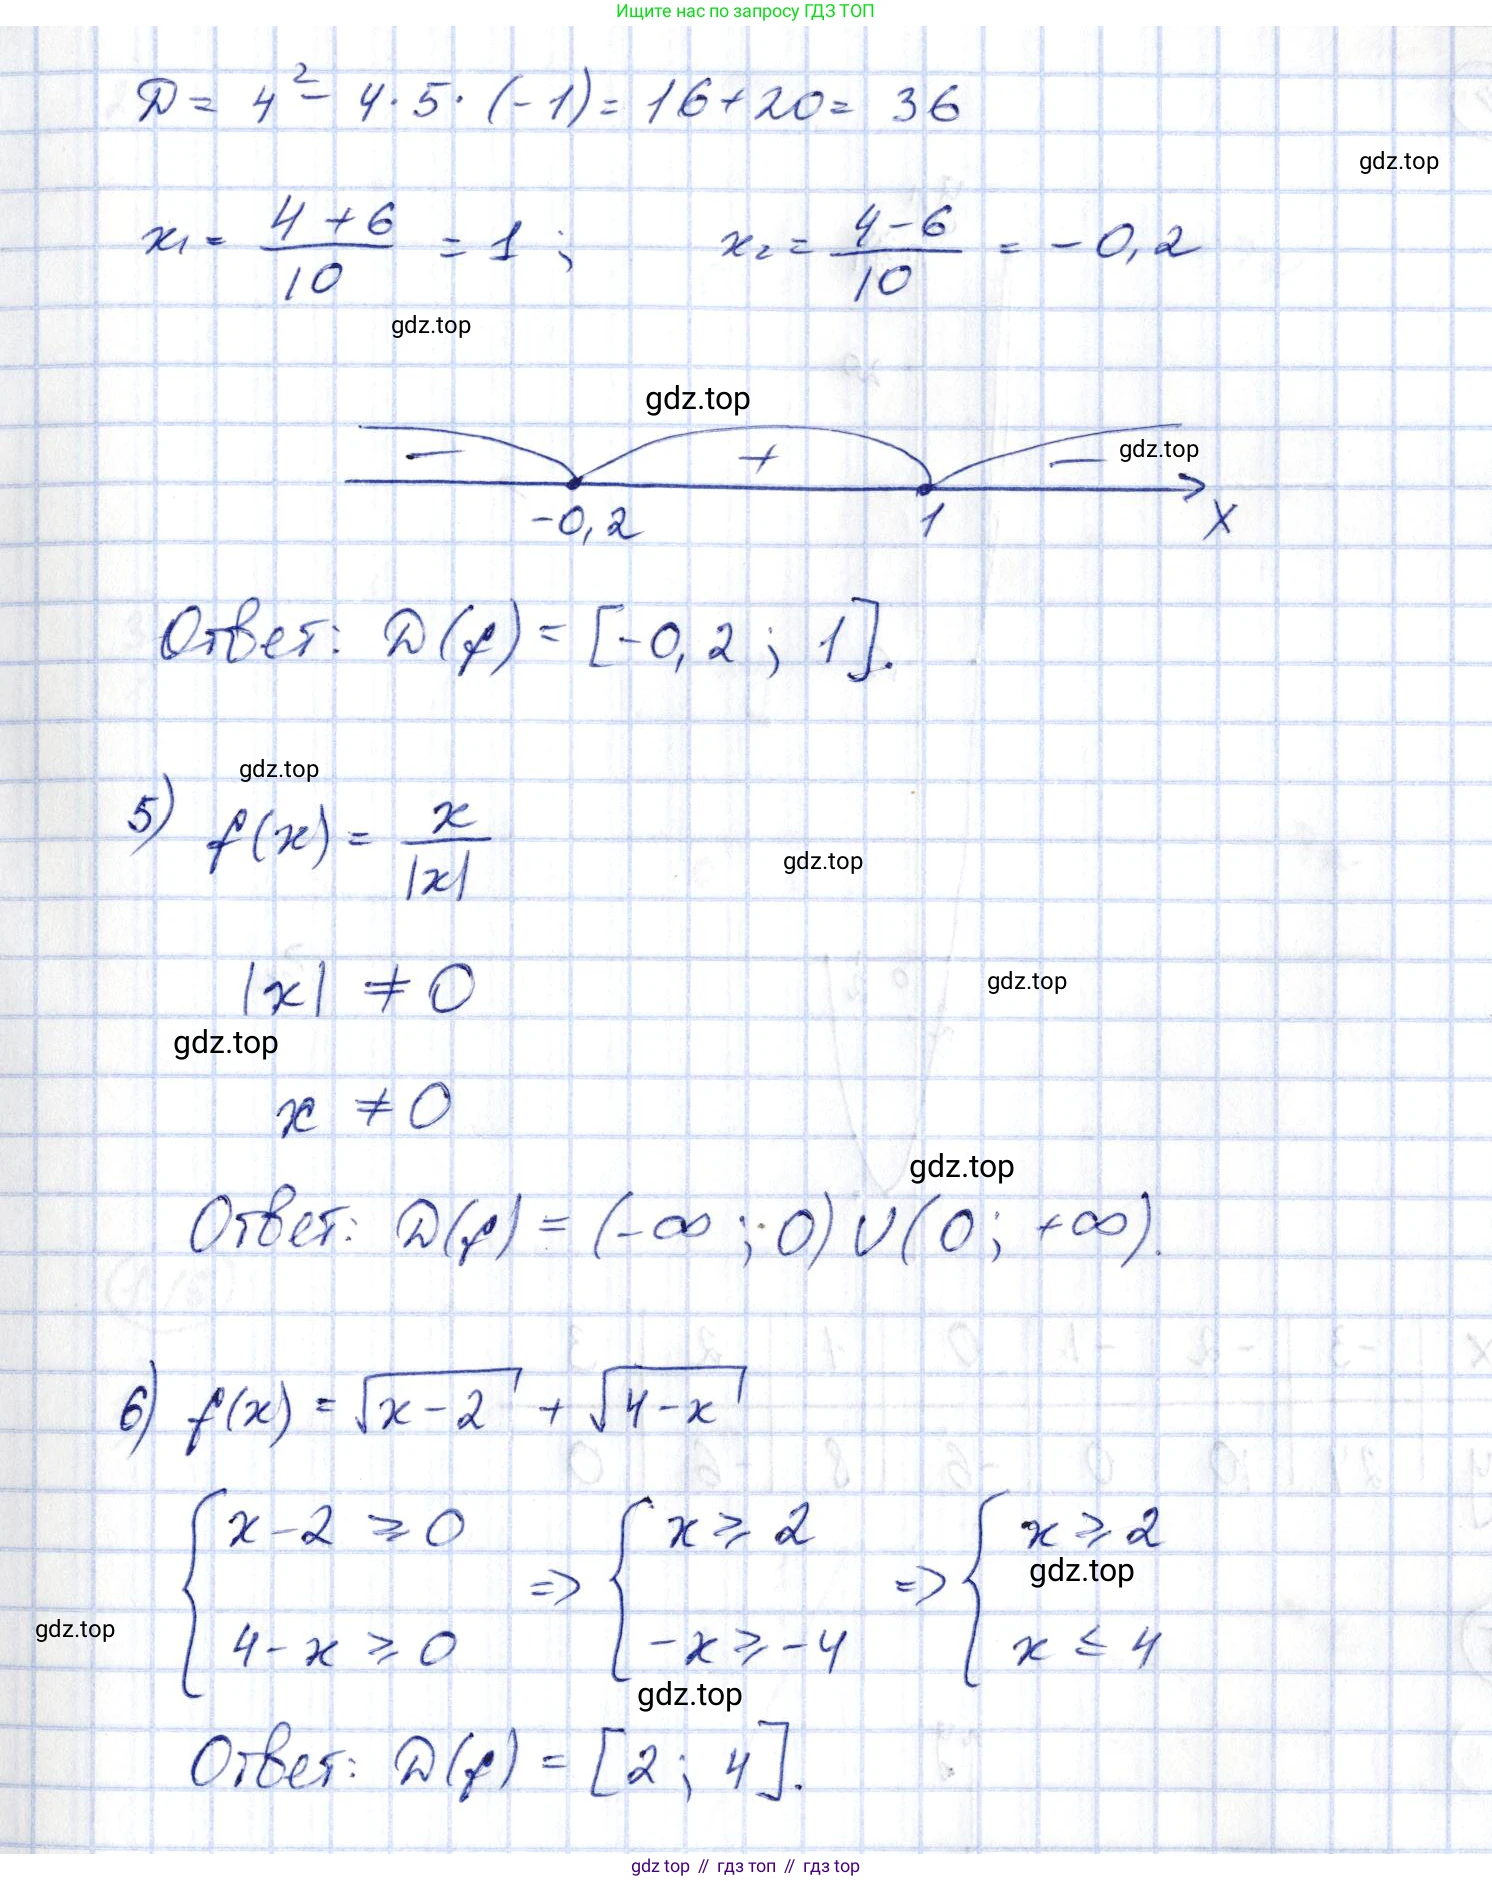 Ищите нас по запросу ГДЗ ТОП
D = 4² - 4 · 5 · (-1) = 16 + 20 = 36
gdz.top
x₁ = (4 + 6)/10 = 1 ; x₂ = (4 - 6)/10 = -0,2
gdz.top
gdz.top
− + − gdz.top
-0,2 1 X
Ответ: D(f) = [-0,2 ; 1].
gdz.top
5) f(x) = x/|x|
gdz.top
|x| ≠ 0
gdz.top
gdz.top
x ≠ 0
gdz.top
Ответ: D(f) = (-∞ ; 0) ∪ (0 ; +∞).
6) f(x) = √(x - 2) + √(4 - x)
{ x - 2 ≥ 0 => { x ≥ 2 => { x ≥ 2
gdz.top
gdz.top
4 - x ≥ 0 -x ≥ -4 x ≤ 4
gdz.top
Ответ: D(f) = [2 ; 4].
gdz top // гдз топ // гдз top